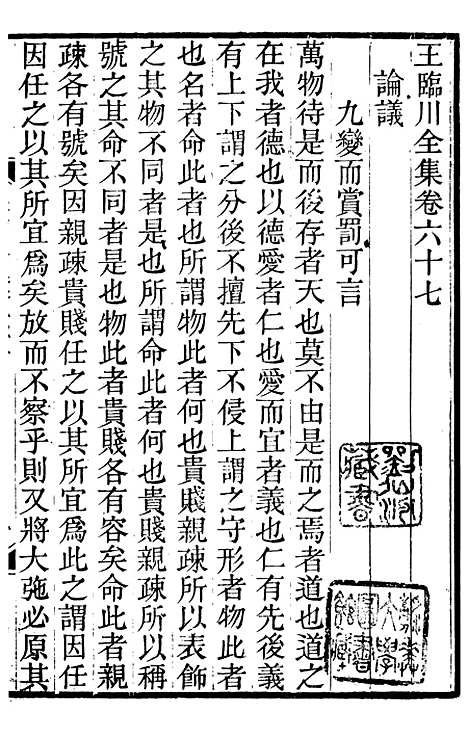 王臨川全集卷六十七
論議
九變而賞罰可言
萬物待是而後存者天也莫不由是而之焉者道也道之
在我者德也以德愛者仁也愛而宜者義也仁有先後義
有上下謂之分後不擅先下不侵上謂之守形者物此者
也名者命此者也所謂物此者何也貴賤親疎所以表飾
之其物不同者是也所謂命此者何也貴賤親疎所以稱
號之其命不同者是也物此者貴賤各有容矣命此者親
疎各有號矣因親疎貴賤任之以其所宜爲此之謂因任
因任之以其所宜爲矣放而不察乎則又將大弛必原其
藏書
大學
圖書
館藏